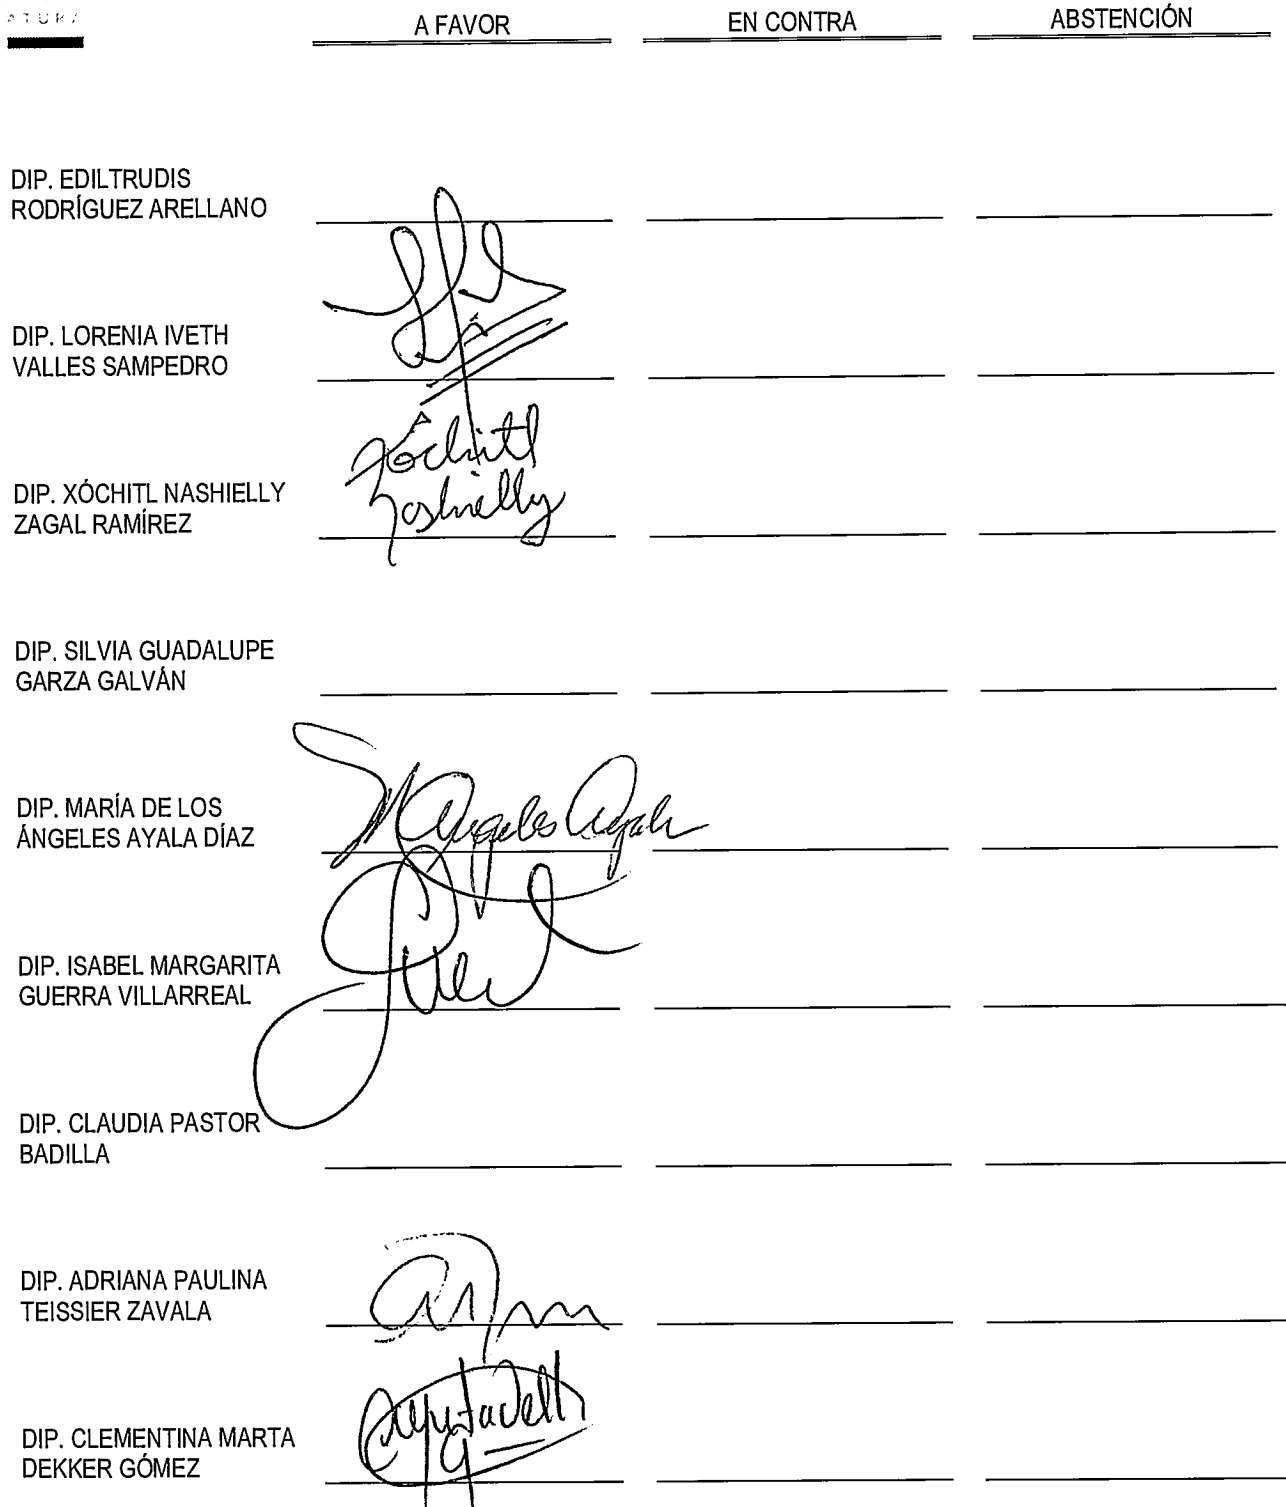 A FAVOR EN CONTRA ABSTENCIÓN
DIP. EDILTRUDIS
RODRÍGUEZ ARELLANO
DIP. LORENIA IVETH
VALLES SAMPEDRO
Xóchitl
DIP. XÓCHITL NASHIELLY
Nashielly
ZAGAL RAMÍREZ
DIP. SILVIA GUADALUPE
GARZA GALVÁN
DIP. MARÍA DE LOS
M Angeles Ayala
ÁNGELES AYALA DÍAZ
DIP. ISABEL MARGARITA
GUERRA VILLARREAL
DIP. CLAUDIA PASTOR
BADILLA
DIP. ADRIANA PAULINA
TEISSIER ZAVALA
DIP. CLEMENTINA MARTA
DEKKER GÓMEZ